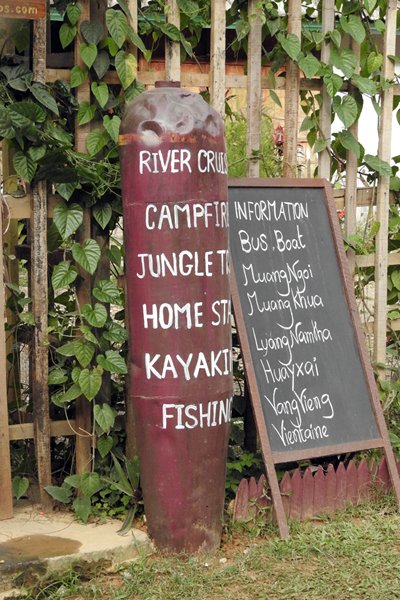 os.com
RIVER CRUIS
CAMPFIR
JUNGLE T
HOME ST
KAYAKI
FISHING
INFORMATION
Bus. Boat
Muang Ngoi
Muang Khua
Luang Namtha
Huayxai
Vang Vieng
Vientaine